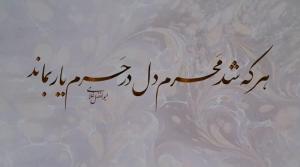 هر که شد محرم دل در حرم یار بماند